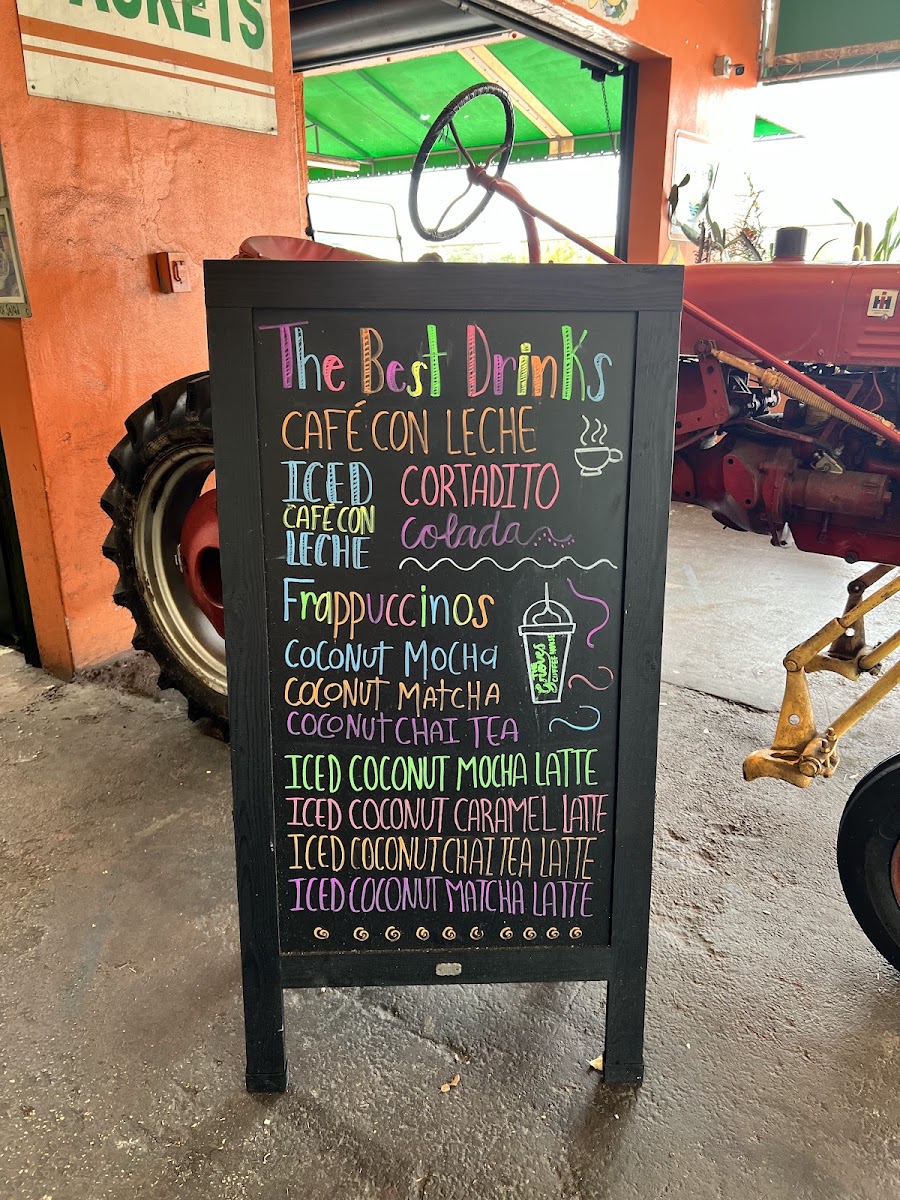 The Best Drinks
CAFÉ CON LECHE
ICED
CAFÉ CON
LECHE
CORTADITO
Colada
Frappuccinos
COCONUT MOCHA
COCONUT MATCHA
COCONUT CHAI TEA
THE
Groves
COFFEE HOUSE
ICED COCONUT MOCHA LATTE
ICED COCONUT CARAMEL LATTE
ICED COCONUT CHAI TEA LATTE
ICED COCONUT MATCHA LATTE
IH